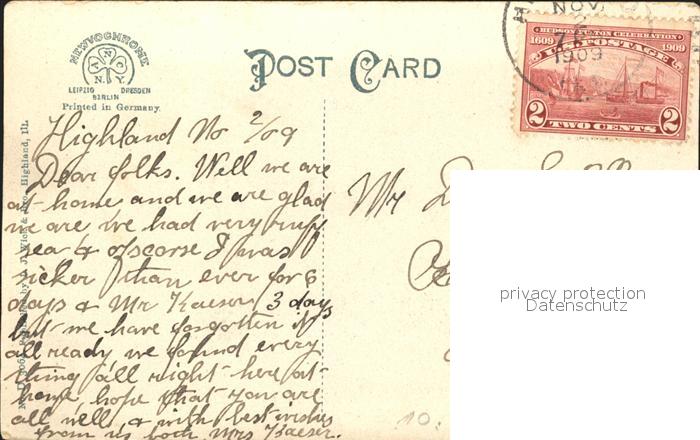 NEWVOCHROME
A N C O
N.Y.
LEIPZIG DRESDEN
BERLIN
Printed in Germany.
POST CARD
NOV.
2
1909
HUDSON-FULTON CELEBRATION
1609 1909
U.S. POSTAGE
2 TWO CENTS 2
Published by J. Wick & Bro. Highland, Ill.
Highland No 2/09
Dear folks. Well we are
at home and we are glad
we are we had very ruff
sea & ofscorse I was
sicker than ever for 6
days & Mr Kaeser 3 days
but we have forgotten it
all ready we found every
thing all right here at
home, hope that you are
all well & with best wishes
from us both Mrs Kaeser.
Mr
privacy protection
Datenschutz
10.